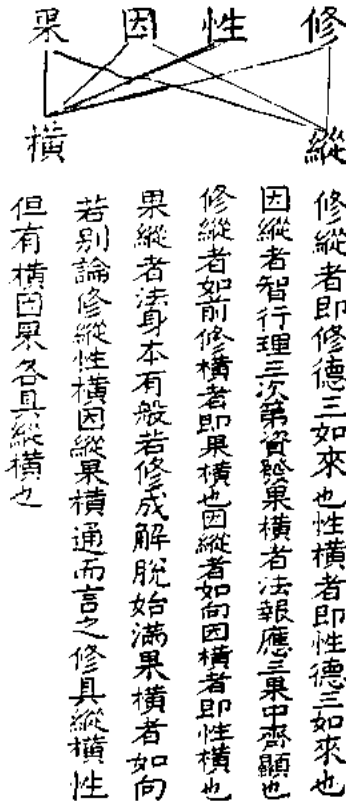 修 性 因 果
縱 橫
修縱者即修德三如來也性橫者即性德三如來也
因縱者智行理三次第資發果橫者法報應三果中齊顯也
修縱者如前修橫者即果橫也因縱者如向因橫者即性橫也
果縱者法身本有般若修成解脫始滿果橫者如向
若別論修縱性橫因縱果橫通而言之修具縱橫性
但有橫因果各具縱橫也